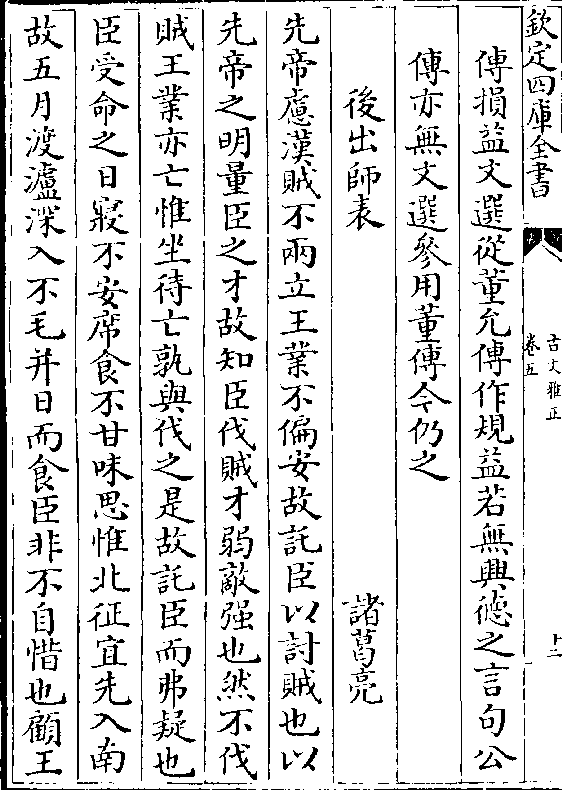 欽定四庫全書
古文雅正
卷五
十二
傳損益文選從董允傳作規益若無興德之言句公
傳亦無文選參用董傳今仍之
後出師表
諸葛亮
先帝慮漢賊不兩立王業不偏安故託臣以討賊也以
先帝之明量臣之才故知臣伐賊才弱敵强也然不伐
賊王業亦亡惟坐待亡孰與伐之是故託臣而弗疑也
臣受命之日寢不安席食不甘味思惟北征宜先入南
故五月渡瀘深入不毛并日而食臣非不自惜也顧王